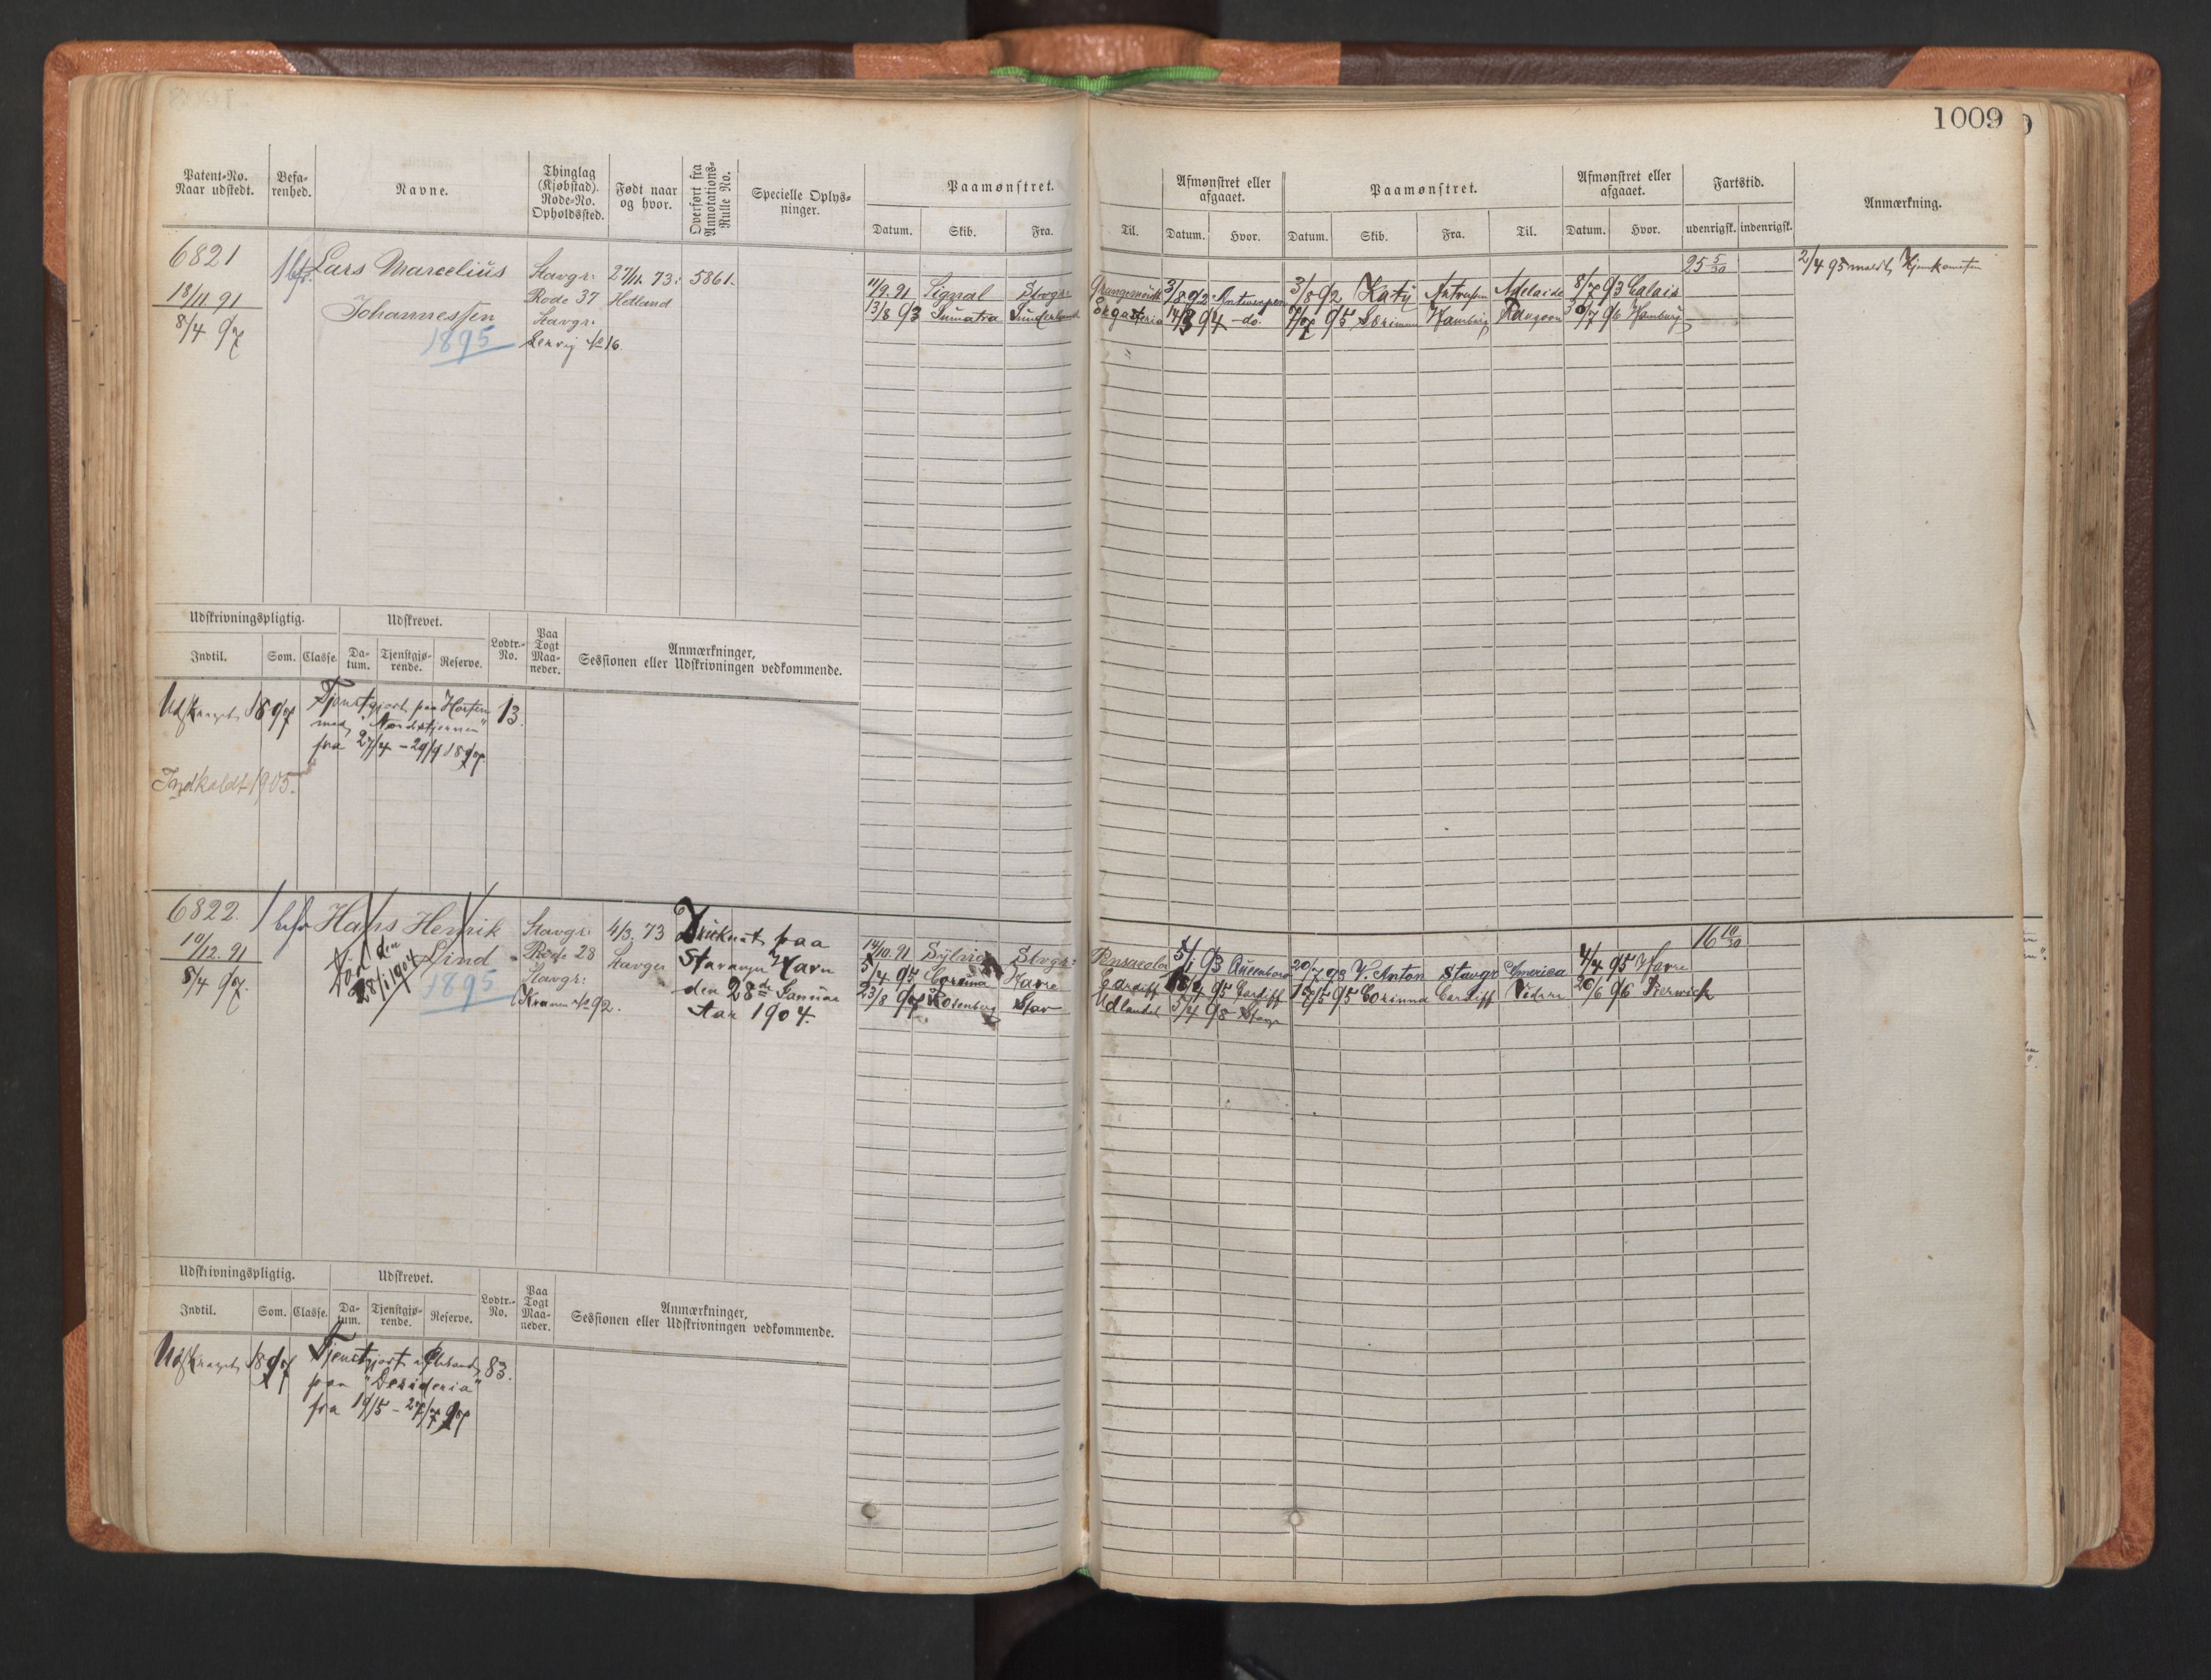 1009
Patent-No.
Naar udstedt.
Befa-
renhed.
Navne.
Thinglag
(Kjøbstad).
Rode-No.
Opholdssted.
Født naar
og hvor.
Overført fra
Annotations-
Rulle No.
Specielle Oplys-
ninger.
Paamønstret.
Datum. Skib. Fra.
Til.
Afmønstret eller
afgaaet.
Datum. Hvor.
Paamønstret.
Datum. Skib. Fra. Til.
Afmønstret eller
afgaaet.
Datum. Hvor.
Fartstid.
udenrigsk. indenrigsk.
Anmærkning.
6821
18/11 91
8/4 97
1 bf.
Lars Marcelius
Johannessen
1895
Stavgr:
Rode 37
Stavgr.
27/11. 73.
Hetland
5861.
11/9. 91 Signal Stvgr. 3/8 92 Antwerpen 3/8 92 Katy Antwerpen Adelaide 8/7 93 Calais
13/8 93 Sumatra Sunderland 94 - do. 95 Hamburg Rangoon 96 Hamburg
25 5/30
2/4 95 meldt Hjemkomsten
Udskrivningspligtig.
Indtil. Som. Classe.
Udskrevet.
Da-
tum.
Tjenstgjø-
rende.
Reserve.
Lodtr.-
No.
Paa
Togt
Maa-
neder.
Anmærkninger,
Sessionen eller Udskrivningen vedkommende.
1897
Tjenstgjort paa Horten
med "Nordstjernen"
fra 27/4 - 29/9 1897
13.
Indkaldt 1905.
6822.
10/12. 91
8/4 97.
1 bef
Hans Henrik
Lind
Død den
28/1 1904
1895
Stavgr:
Rode 28
Stavgr:
Kranen No 92.
4/3. 73
Stavger
Druknet paa
Stavanger Havn
den 28de Januar
Aar 1904.
14/10. 91 Sylvia Stvgr: Pensacola 5/1 93 Queenboro 20/7 93 V. Anton Stavgr America 4/4 95 Havre
5/4 95 Corinna Havre Cardiff 95 Cardiff 95 Corinna Cardiff 20/6 96
23/8 97 Stav Udlandet 5/4 98 Stavgr
16 10/30
Udskrivningspligtig.
Indtil. Som. Classe.
Udskrevet.
Da-
tum.
Tjenstgjø-
rende.
Reserve.
Lodtr.-
No.
Paa
Togt
Maa-
neder.
Anmærkninger,
Sessionen eller Udskrivningen vedkommende.
1897
Tjenstgjort
paa "Desideria"
fra 19/5 - 27/7 97
83.